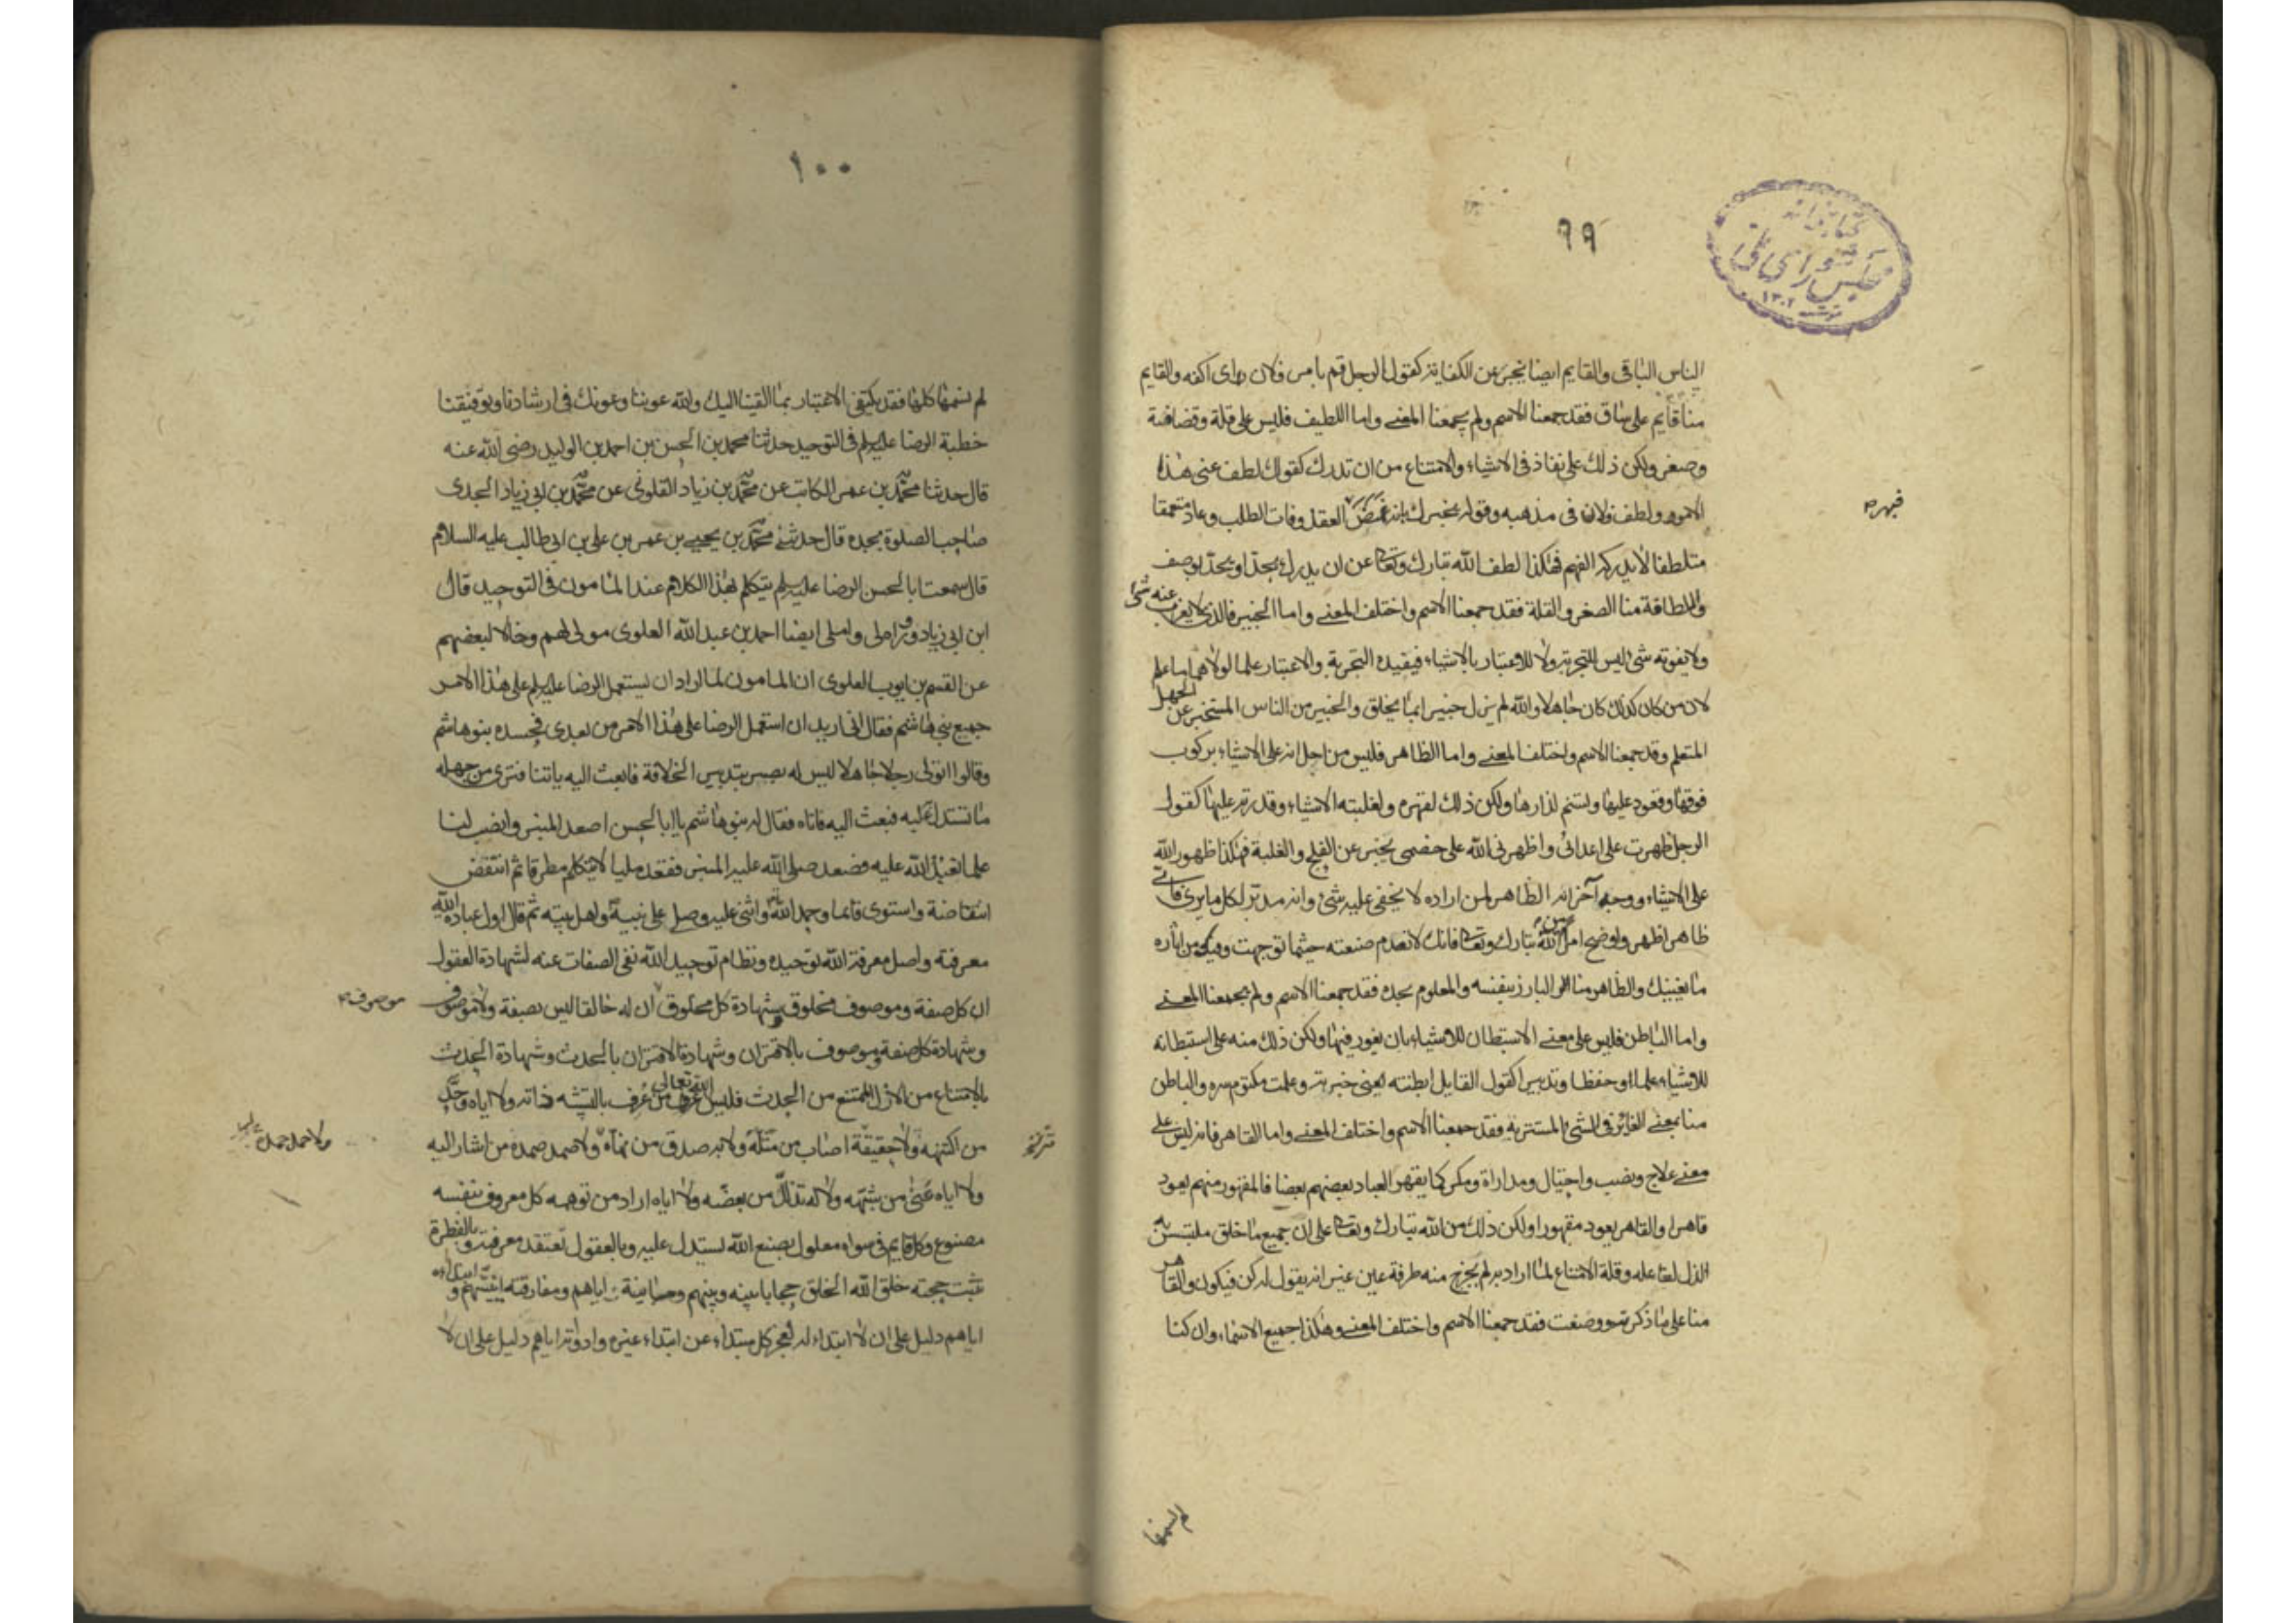 ٩٩
كتابخانه
مجلس شورای ملی
١٣٠٢
الناس الباقى والقايم ايضا يخبر عن الكفاية كقولك لرجل قم بامر فلان اى اكفه والقايم
منا قايم على ساق فقد جمعنا الاسم ولم يجمعنا المعنى واما اللطيف فليس على قلة وقضافة
وصغر ولكن ذلك على نفاذ فى الاشياء والامتناع من ان تدرك كقولك لطف عنى هذا
الامر ولطف فلان فى مذهبه وقوله يخبرك انه غمض العقل وفات الطلب وعاد متعمقا
فبهر
متلطفا لا يدركه الفهم فهكذا لطف الله تبارك وتعالى عن ان يدرك بحد او يحد بوصف
واللطافة منا الصغر والقلة فقد جمعنا الاسم واختلف المعنى واما الخبير فالذى لا يعزب عنه شئ
ولا يفوته شئ ليس للتجربة ولا للاعتبار بالاشياء فيفيده التجربة والاعتبار علما لولاهما ما علم
لان من كان كذلك كان جاهلا والله لم يزل خبيرا بما يخلق والخبير من الناس المستخبر عن الجهل
المتعلم وقد جمعنا الاسم واختلف المعنى واما الظاهر فليس من اجل انه على الاشياء بركوب
فوقها وقعود عليها وتسنم لذراها ولكن ذلك لقهره ولغلبته الاشياء وقدرته عليها كقول
الرجل ظهرت على اعدائى واظهرنى الله على خصمى يخبر عن الفلج والغلبة فهكذا ظهور الله
على الاشياء ووجه آخر انه الظاهر لمن اراده لا يخفى عليه شئ وانه مدبر لكل ما يرى فاى
ظاهر اظهر واوضح امرا من الله تبارك وتعالى فانك لا تعدم صنعته حيثما توجهت وفيك من آثاره
ما يغنيك والظاهر منا البارز بنفسه والمعلوم بحده فقد جمعنا الاسم ولم يجمعنا المعنى
واما الباطن فليس على معنى الاستبطان للاشياء بان يغور فيها ولكن ذلك منه على استبطانه
للاشياء علما وحفظا وتدبيرا كقول القايل ابطنته يعنى خبرته وعلمت مكتوم سره والباطن
منا بمعنى الغائر فى الشئ المستتر به فقد جمعنا الاسم واختلف المعنى واما القاهر فانه ليس على
معنى علاج ونصب واحتيال ومداراة ومكر كما يقهر العباد بعضهم بعضا فالمقهور منهم يعود
قاهرا والقاهر يعود مقهورا ولكن ذلك من الله تبارك وتعالى على ان جميع ما خلق ملتبس به
الذل لفاعله وقلة الامتناع لما اراد به لم يخرج منه طرفة عين غير انه يقول له كن فيكون والقاهر
منا على ما ذكرته ووصفت فقد جمعنا الاسم واختلف المعنى وهكذا جميع الاسماء وان كنا
لم نسمها
١٠٠
لم نسمها كلها فقد يكتفى الاعتبار بما القينا اليك والله عوننا وعونك فى ارشادنا وتوفيقنا
خطبة الرضا عليه السلم فى التوحيد حدثنا محمد بن الحسن بن احمد بن الوليد رضى الله عنه
قال حدثنا محمد بن عمر الكاتب عن محمد بن زياد القلزمى عن محمد بن ابى زياد الجدى
صاحب الصلوة بجده قال حدثنى محمد بن يحيى بن عمر بن على بن ابى طالب عليه السلام
قال سمعت ابا الحسن الرضا عليه السلم يتكلم بهذا الكلام عند المامون فى التوحيد قال
ابن ابى زياد ورواه لى واملى ايضا احمد بن عبد الله العلوى مولى لهم وخالا لبعضهم
عن القسم بن ايوب العلوى ان المامون لما اراد ان يستعمل الرضا عليه السلم على هذا الامر
جمع بنى هاشم فقال انى اريد ان استعمل الرضا على هذا الامر من بعدى فحسده بنو هاشم
وقالوا اتولى رجلا جاهلا ليس له بصر بتدبير الخلافة فابعث اليه ياتنا فترى من جهله
ما تستدل عليه فبعث اليه فاتاه فقال له بنو هاشم يا ابا الحسن اصعد المنبر وانصب لنا
علما نعبد الله عليه فصعد صلى الله عليه المنبر فقعد مليا لا يتكلم مطرقا ثم انتفض
انتفاضة واستوى قائما وحمد الله واثنى عليه وصلى على نبيه واهل بيته ثم قال اول عبادة الله
معرفته واصل معرفة الله توحيده ونظام توحيد الله نفى الصفات عنه لشهادة العقول
ان كل صفة وموصوف مخلوق وشهادة كل مخلوق ان له خالقا ليس بصفة ولا موصوف
موصوف
وشهادة كل صفة وموصوف بالاقتران وشهادة الاقتران بالحدث وشهادة الحدث
بالامتناع من الازل الممتنع من الحدث فليس الله تعالى عرف من عرف بالتشبيه ذاته ولا اياه وحد
من اكتنهه ولا حقيقة اصاب من مثله ولا به صدق من نهاه ولا صمد صمده من اشار اليه
ولا اياه عنى من شبهه ولا له تذلل من بعضه ولا اياه اراد من توهمه كل معروف بنفسه
مصنوع وكل قايم فى سواه معلول بصنع الله يستدل عليه وبالعقول تعتقد معرفته وبالفطرة
تثبت حجته خلق الله الخلق حجابا بينه وبينهم ومباينته اياهم ومفارقته انيتهم وابتداءه
اياهم دليل على ان لا ابتداء له لعجز كل مبتداء عن ابتداء غيره وادوته اياهم دليل على ان لا